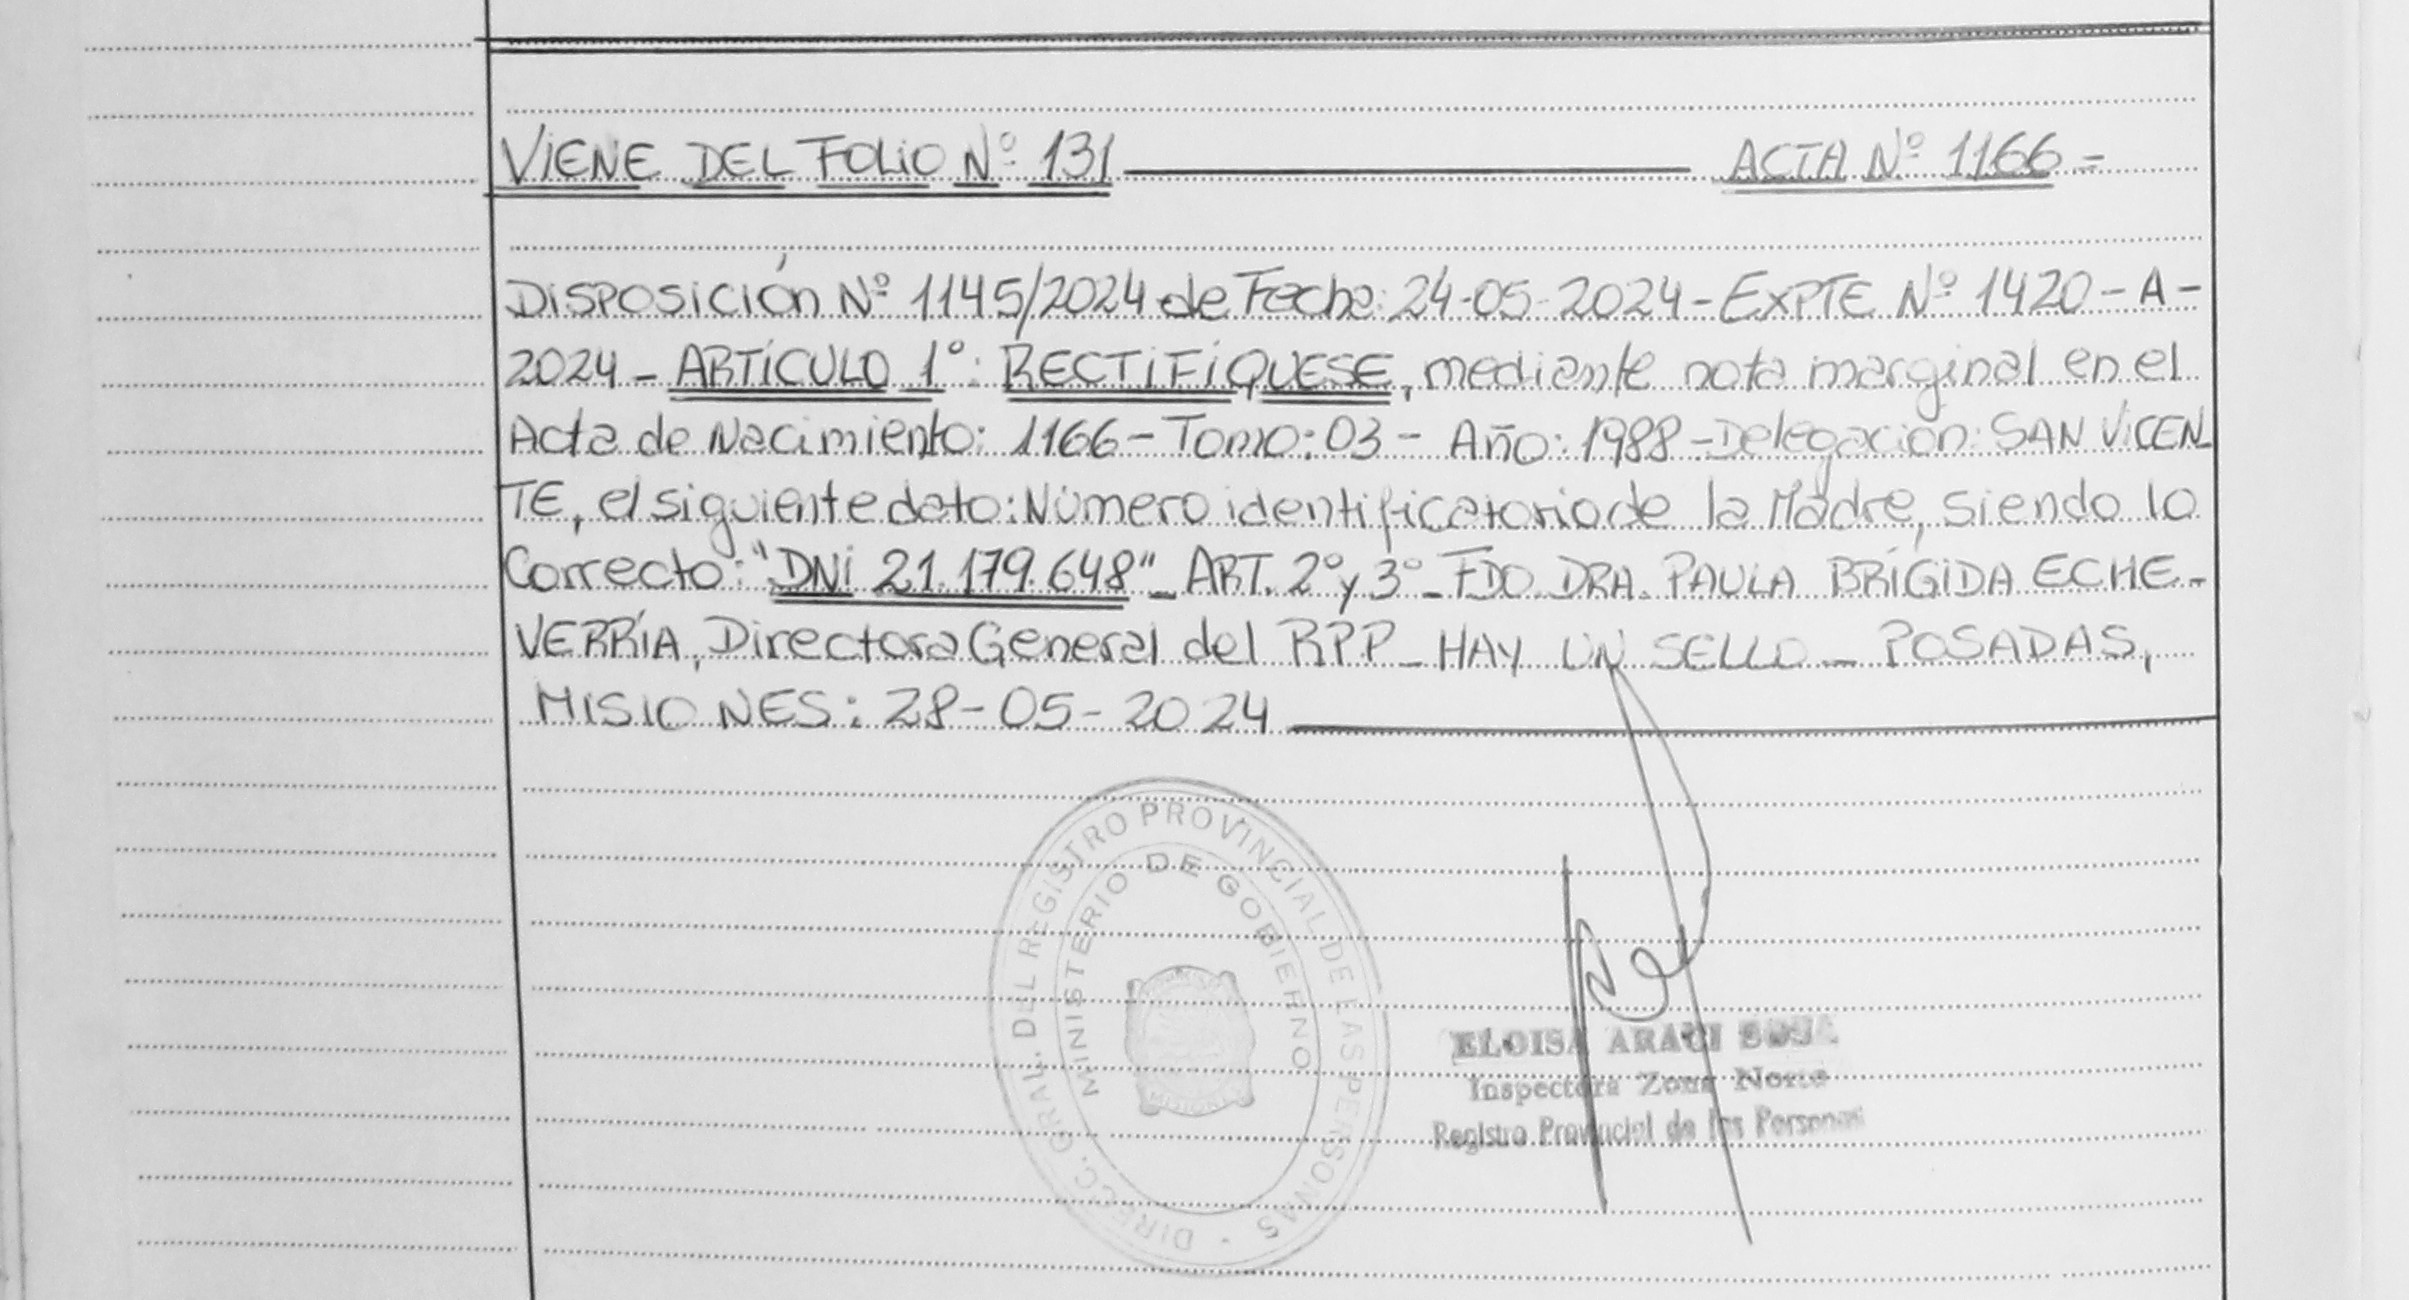 VIENE DEL FOLIO Nº 131 ACTA Nº 1166 =
DISPOSICIÓN Nº 1145/2024 de Fecha: 24-05-2024 - EXPTE Nº 1420 - A -
2024 - ARTÍCULO 1º: RECTIFÍQUESE, mediante nota marginal en el
Acta de Nacimiento: 1166 - Tomo: 03 - Año: 1988 - Delegación: SAN VICEN
TE, el siguiente dato: Número identificatorio de la Madre, siendo lo
Correcto: "DNI 21.179.648" - ART. 2º y 3º - FDO. DRA. PAULA BRÍGIDA ECHE-
VERRÍA, Directora General del RPP - HAY UN SELLO - POSADAS,
MISIONES: 28-05-2024
DIRECC. GRAL. DEL REGISTRO PROVINCIAL DE LAS PERSONAS
MINISTERIO DE GOBIERNO
MISIONES
ELOISA ARACI SOSA
Inspectora Zona Norte
Registro Provincial de las Personas